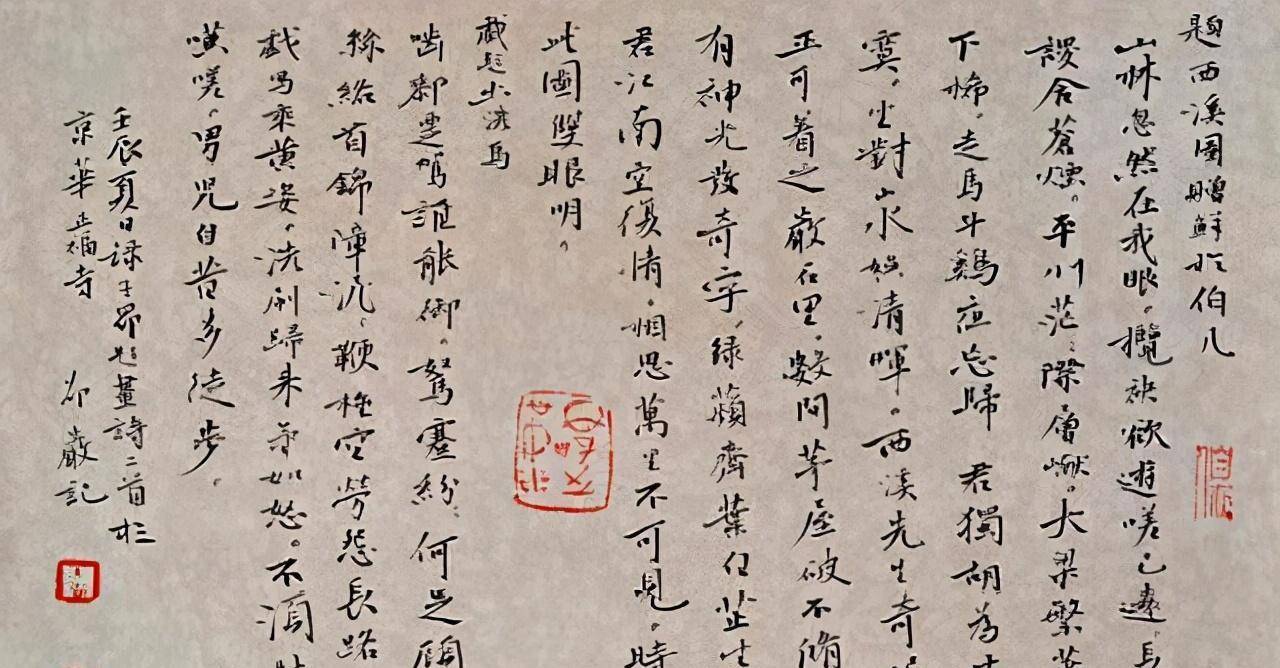 題西溪圖贈鮮於伯几
山林忽然在我眼。攬袂欲遊嗟已遠。長
謖含蒼煙。平川茫茫際層巘。大梁繁華
下稀。走馬斗鷄夜忘歸 君獨胡為
寞。坐對山水娛清暉。西溪先生奇
正可着之巖石里。數間茅屋破不脩
有神光發奇字。綠蘋齊葉白芷生
君江南空復情。相思萬里不可見。時
此圖雙眼明。
戲題出洗馬
嚙郄 誰能御。駑蹇紛紛何足顧
絲絡首錦障泥。鞭棰空勞怨長路
戲馬乘黃姿。洗刷歸來氣如怒。不須
嘆嗟。男兒自昔多徒步。
壬辰夏日録子昂題畫詩二首於
京華正福寺 巖記